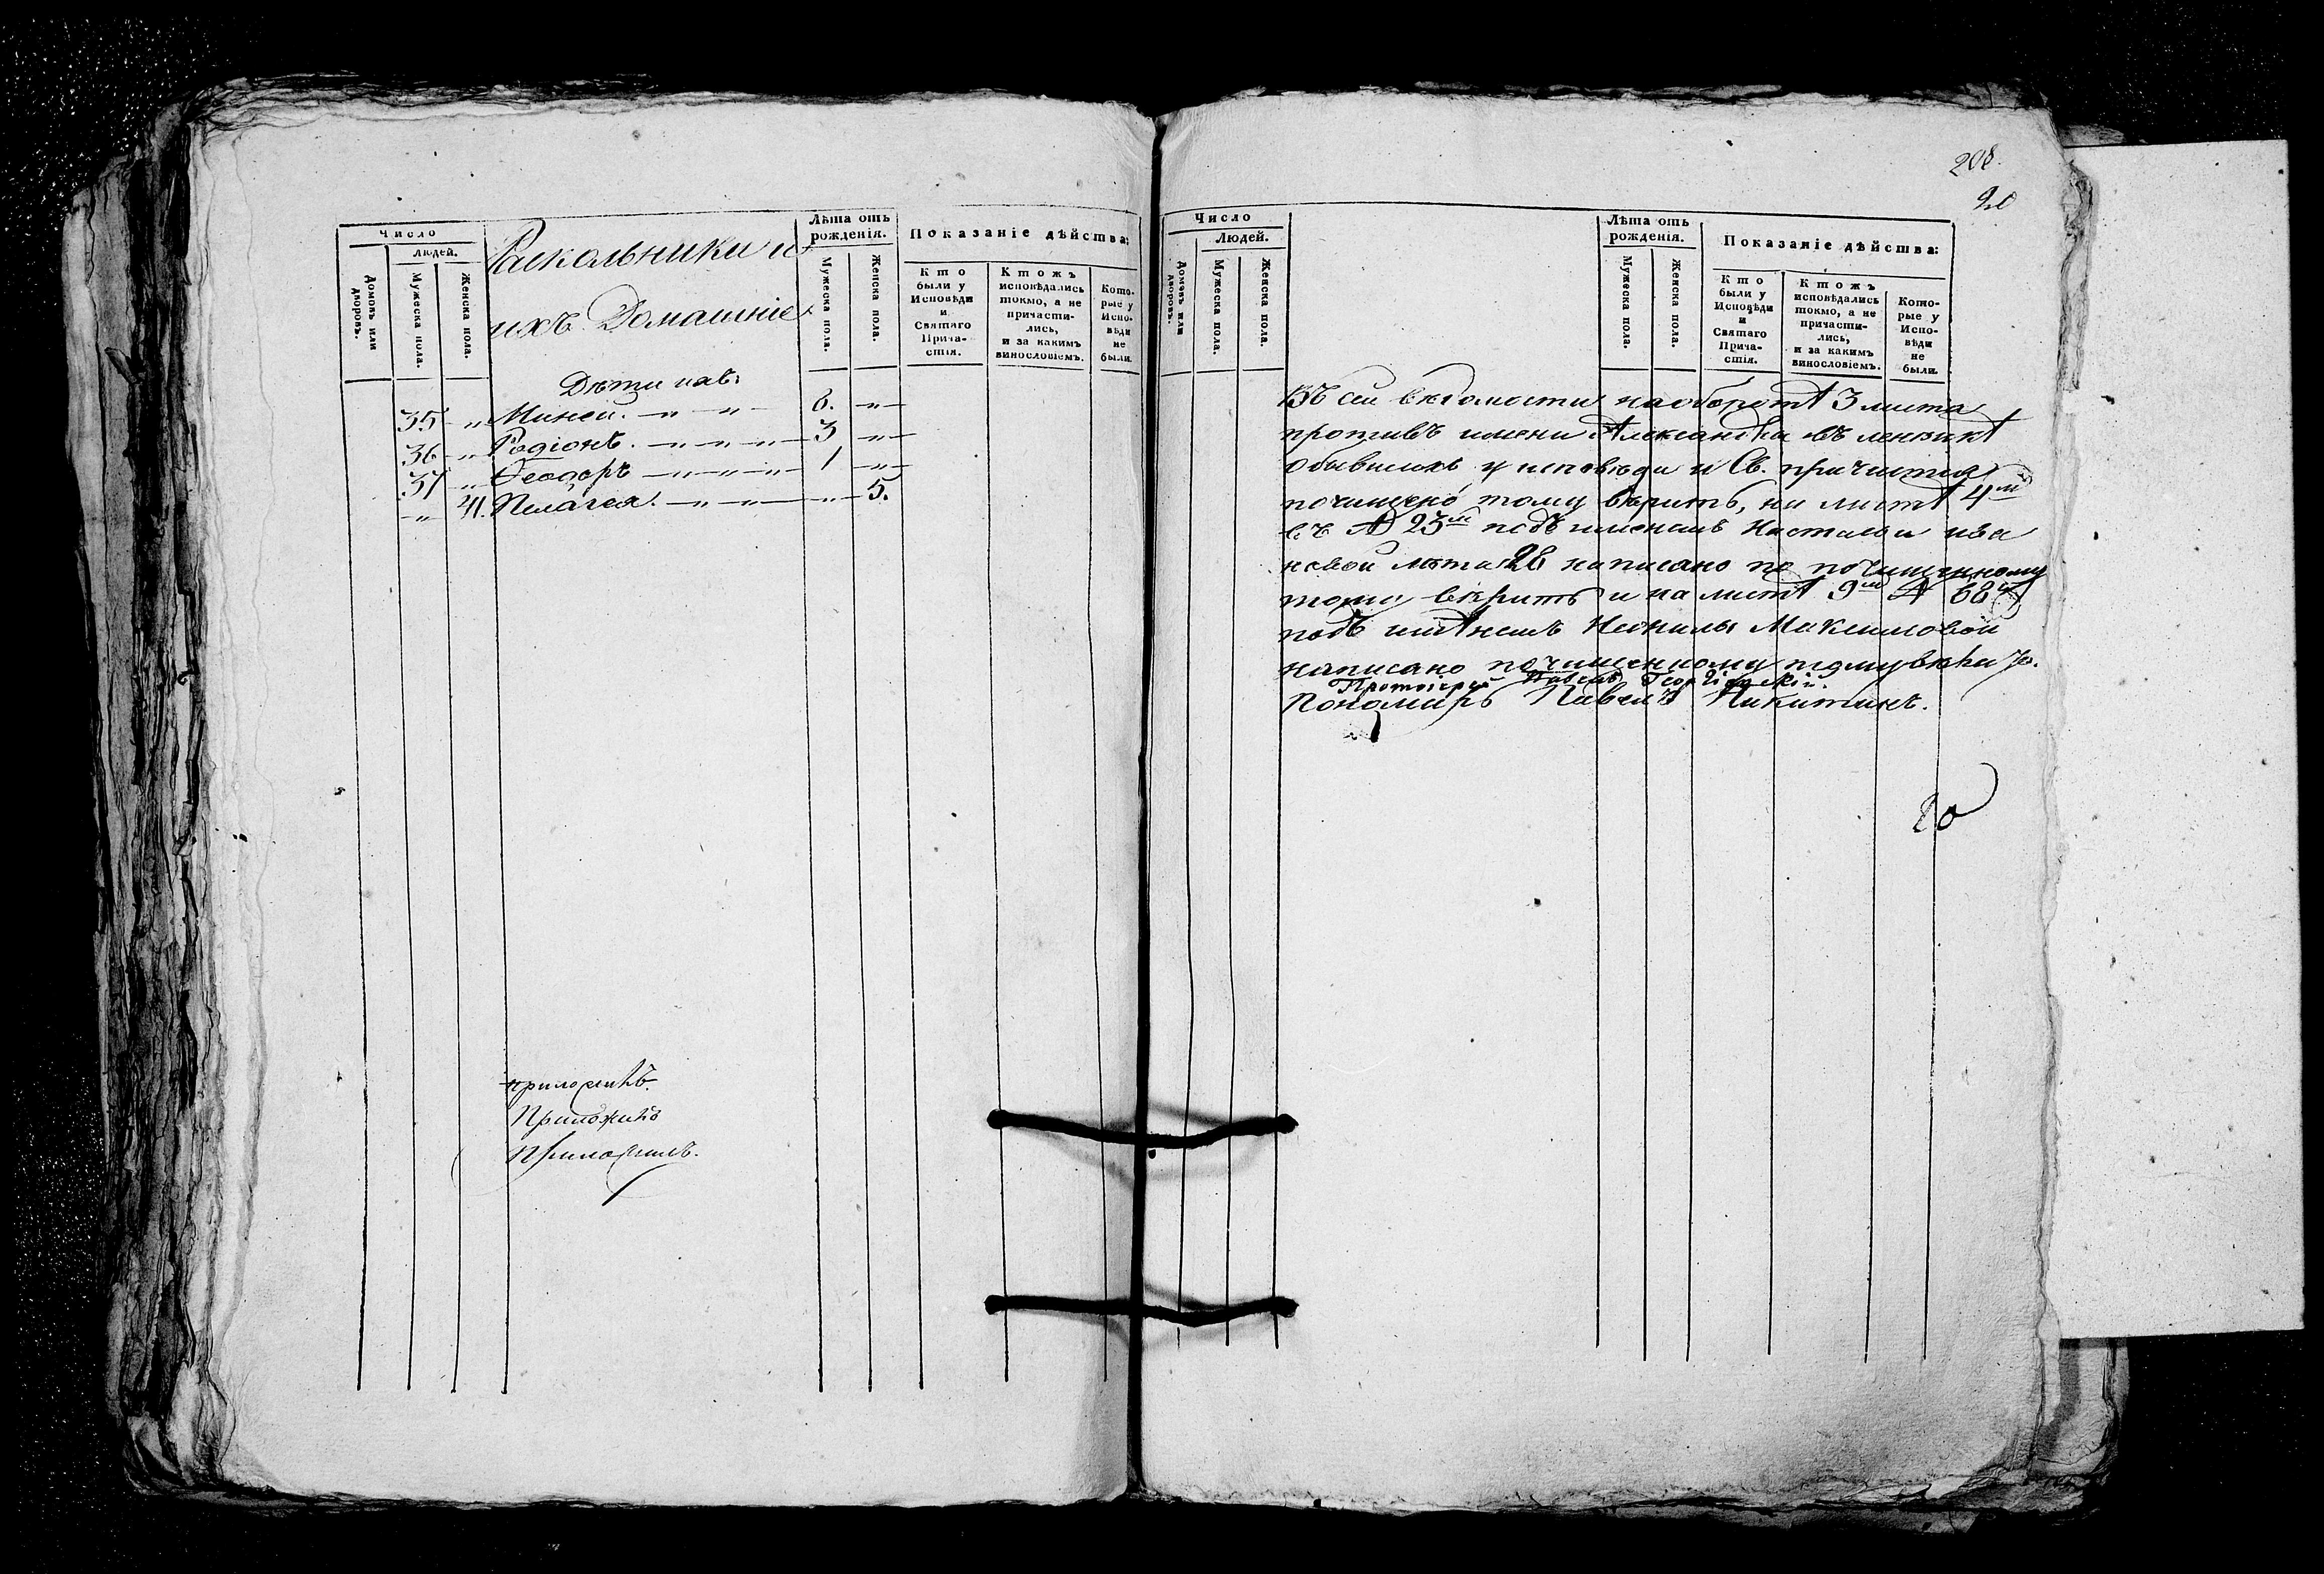 Число
Людей.
Домовъ или дворовъ.
Мужеска пола.
Женска пола.
Раскольники и
ихъ Домашніе
Лѣта отъ рожденія.
Мужеска пола.
Женска пола.
Показаніе дѣйства:
Кто были у Исповѣди и Святаго Прича-стія.
Ктожъ исповѣдались токмо, а не причасти-лись, и за какимъ винословіемъ.
Кото-рые у Испо-вѣди не были.
Дѣти ихъ:
35 „ Миней. — „ — „ — 6. — „ —
36 — „ Родіонъ. — „ — „ — „ — 3 — „ —
37 „ Ѳеодоръ — „ — „ — „ — 1 — „ —
— „ 41. Пелагея. — „ — „ — „ — 5.
приложилъ.
Приложилъ
Приложилъ.
208
20
Число
Людей.
Домовъ или дворовъ.
Мужеска пола.
Женска пола.
Лѣта отъ рожденія.
Мужеска пола.
Женска пола.
Показаніе дѣйства:
Кто были у Исповѣди и Святаго Прича-стія.
Ктожъ исповѣдались токмо, а не причасти-лись, и за какимъ винословіемъ.
Кото-рые у Испо-вѣди не были.
Въ сей вѣдомости на оборотѣ 3 листа
противъ имени Александра въ
у исповѣди и Св. причастія
почищено тому вѣрить, на листѣ 4м
въ № 23м подъ именемъ Настасьи ива
новой лѣта 28 написано по почищенному
тому вѣрить и на листѣ 9м № 68
подъ имѣнемъ Неонилы Максимовой
написано почищенному тому вѣрить.
Протоіерей Павелъ Георгіевскій.
Пономарь Павелъ Никитинъ.
20